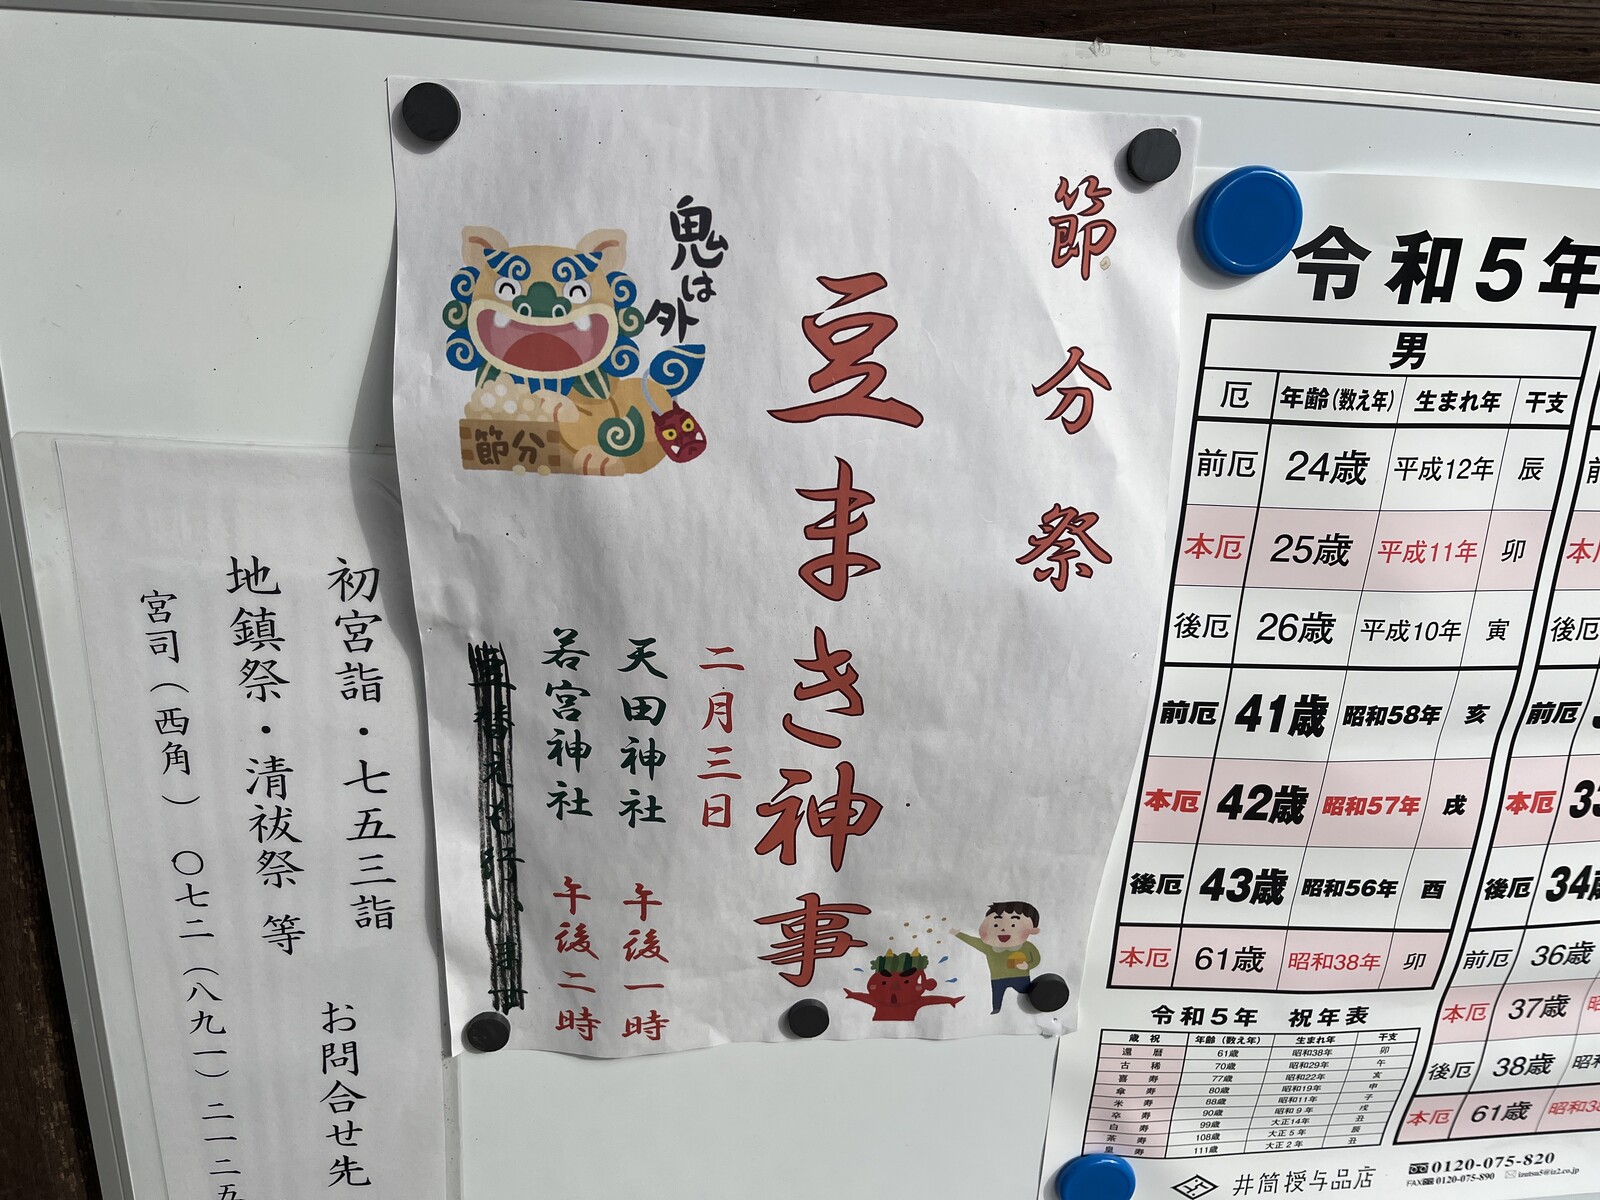 節分祭
豆まき神事
鬼は外
節分
二月三日
天田神社 午後一時
若宮神社 午後二時
初宮詣・七五三詣
地鎮祭・清祓祭 等
お問合せ先
宮司(西角) 〇七二(八九一)二一二五
令和5年
男
厄 年齢(数え年) 生まれ年 干支
前厄 24歳 平成12年 辰
本厄 25歳 平成11年 卯
後厄 26歳 平成10年 寅
前厄 41歳 昭和58年 亥
本厄 42歳 昭和57年 戌
後厄 43歳 昭和56年 酉
本厄 61歳 昭和38年 卯
後厄
前厄
本厄
後厄 34歳
前厄 36歳
本厄 37歳
後厄 38歳
本厄 61歳
令和5年 祝年表
歳祝 年齢(数え年) 生まれ年 干支
還暦 61歳 昭和38年 卯
古稀 70歳 昭和29年 午
喜寿 77歳 昭和22年 亥
傘寿 80歳 昭和19年 申
米寿 88歳 昭和11年 子
卒寿 90歳 昭和9年 戌
白寿 99歳 大正14年 丑
茶寿 108歳 大正5年 辰
皇寿 111歳 大正2年 丑
井筒授与品店
0120-075-820
FAX 0120-075-890 izutsu5@iz2.co.jp